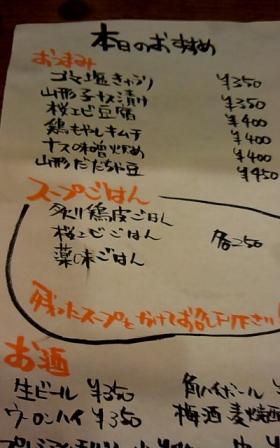 本日のおすすめ
おつまみ
ゴマ塩きゅうり ¥350
山形子ナス漬け ¥350
桜エビ豆腐 ¥400
鶏もやしキムチ ¥400
ナスの味噌炒め ¥400
山形だだちゃ豆 ¥450
スープごはん
炙り鶏皮ごはん
桜エビごはん 各250
薬味ごはん
残ったスープをかけてお召し下さい!
お酒
生ビール ¥350 角ハイボール ¥
ウーロンハイ ¥350 梅酒 麦焼酎